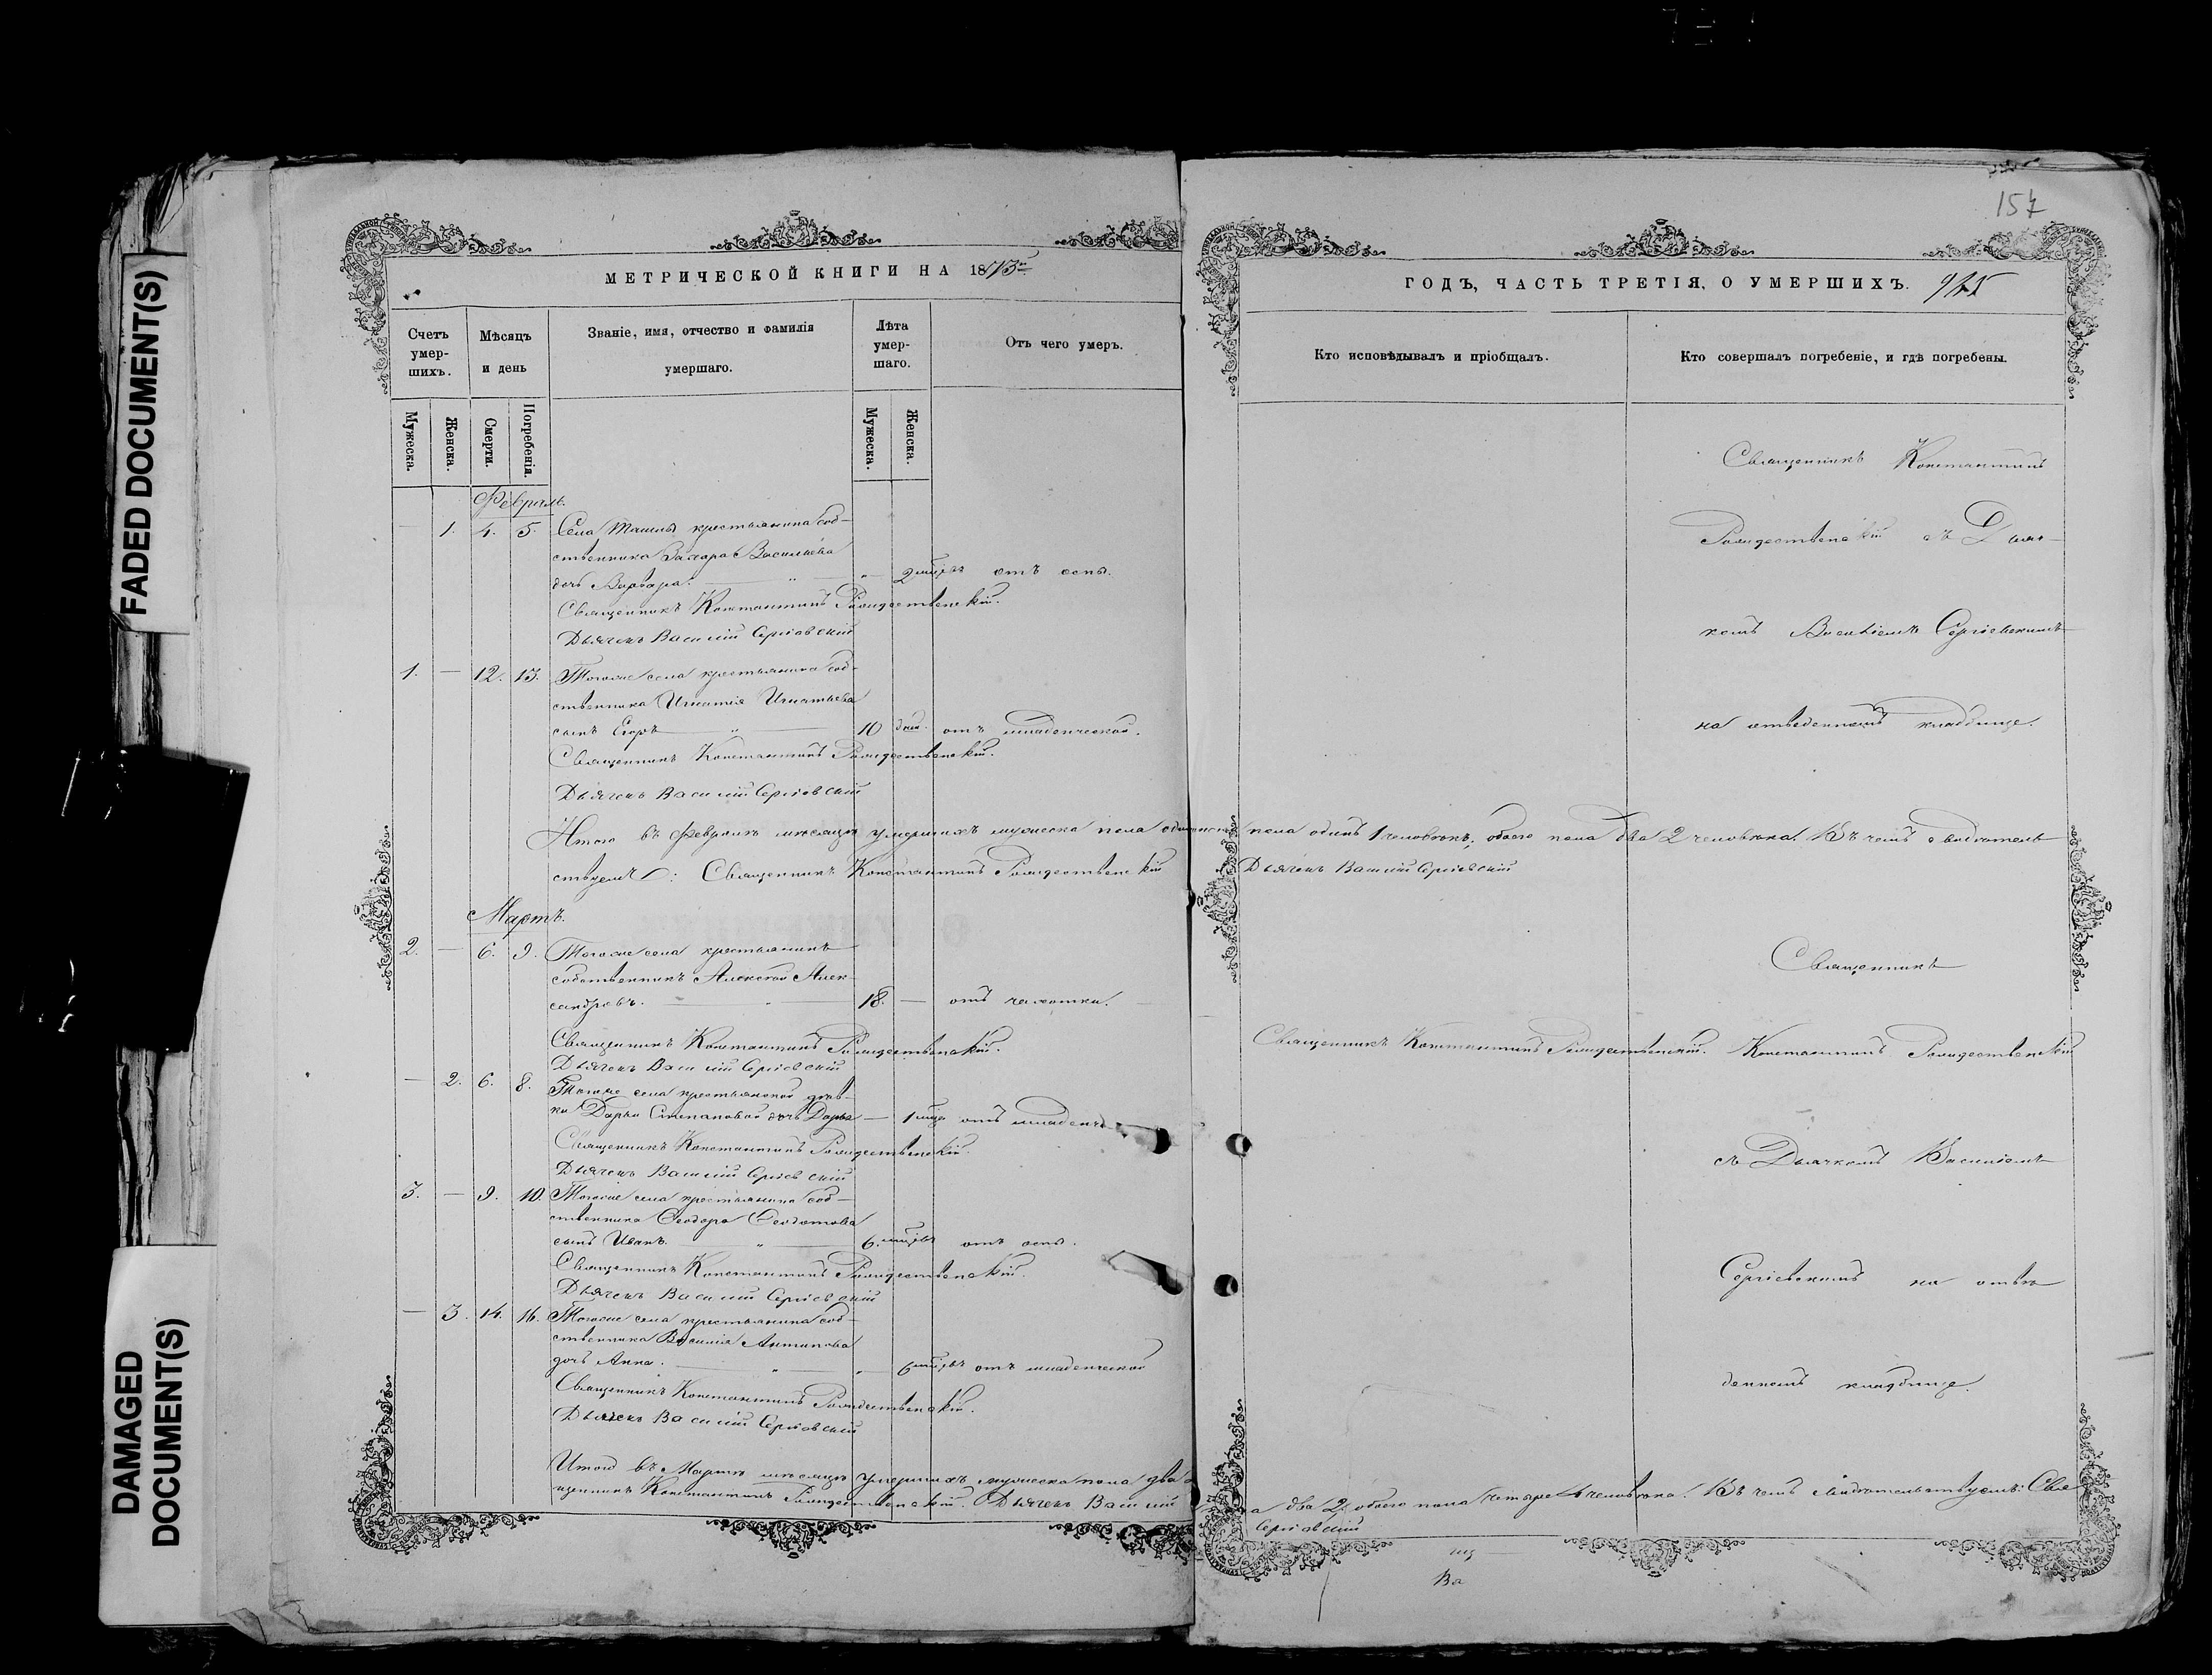 FADED DOCUMENT(S)
DAMAGED
DOCUMENT(S)
157
МЕТРИЧЕСКОЙ КНИГИ НА 1873й
Счетъ
умер-
шихъ.
Мѣсяцъ
и день
Званіе, имя, отчество и фамилія
умершаго.
Лѣта
умер-
шаго.
Отъ чего умеръ.
Мужеска.
Женска.
Смерти.
Погребенія.
Мужеска.
Женска.
Февраль.
— 1. 4. 5. Села Ташлы крестьянина соб-
ственника Захара Васильева
дочь Варвара. — " — " — 2 мѣсяц. отъ оспы.
Священникъ Константинъ Рождественскій.
Дьячекъ Василій Сергіевскій
1. — 12. 13. Тогоже села крестьянина соб-
ственника Игнатія Игнатьева
сынъ Егоръ — " — 10 дней. отъ младенческой.
Священникъ Константинъ Рождественскій.
Дьячекъ Василій Сергіевскій
Итого въ Февралѣ мѣсяцѣ умершихъ мужеска пола
ствуемъ: Священникъ Константинъ Рождественскій
Мартъ.
2. — 6. 9. Тогоже села крестьянинъ
собственникъ Алексѣй Алек-
сандровъ. — " — 18. — отъ чахотки.
Священникъ Константинъ Рождественскій.
Дьячекъ Василій Сергіевскій
— 2. 6. 8. Тогоже села крестьянской дѣв-
ки Дарьи Степановой дочь Дарья — 1 мѣс. отъ младенч
Священникъ Константинъ Рождественскій.
Дьячекъ Василій Сергіевскій
3. — 9. 10. Тогоже села крестьянина соб-
ственника Ѳеодора Ѳедотова
сынъ Иванъ. — " — 6 мѣсяц. отъ оспы.
Священникъ Константинъ Рождественскій.
Дьячекъ Василій Сергіевскій
— 3. 14. 16. Тогоже села крестьянина соб-
ственника Василія Антипова
дочь Анна. — " — " — 6 мѣсяц. отъ младенческой
Священникъ Константинъ Рождественскій.
Дьячекъ Василій Сергіевскій
Итого въ Мартѣ мѣсяцѣ умершихъ мужеска пола два
щенникъ Константинъ Рождественскій. Дьячекъ Василій
ГОДЪ, ЧАСТЬ ТРЕТІЯ, О УМЕРШИХЪ.
Кто исповѣдывалъ и пріобщалъ.
Кто совершалъ погребеніе, и гдѣ погребены.
Священникъ Константинъ
Рождественскій съ Дьяч-
комъ Василіемъ Сергіевскимъ
на отведенномъ кладбище.
пола одинъ 1 человѣкъ, обоего пола два 2 человѣка. Въ чемъ свидѣтель-
Дьячекъ Василій Сергіевскій
Священникъ
Священникъ Константинъ Рождественскій. Константинъ Рождественскій
съ Дьячкомъ Василіемъ
Сергіевскимъ на отве
денномъ кладбище.
а два 2, обоего пола четыре 4 человѣка. Въ чемъ свидѣтельствуемъ: Свя
Сергіевскій
Ва